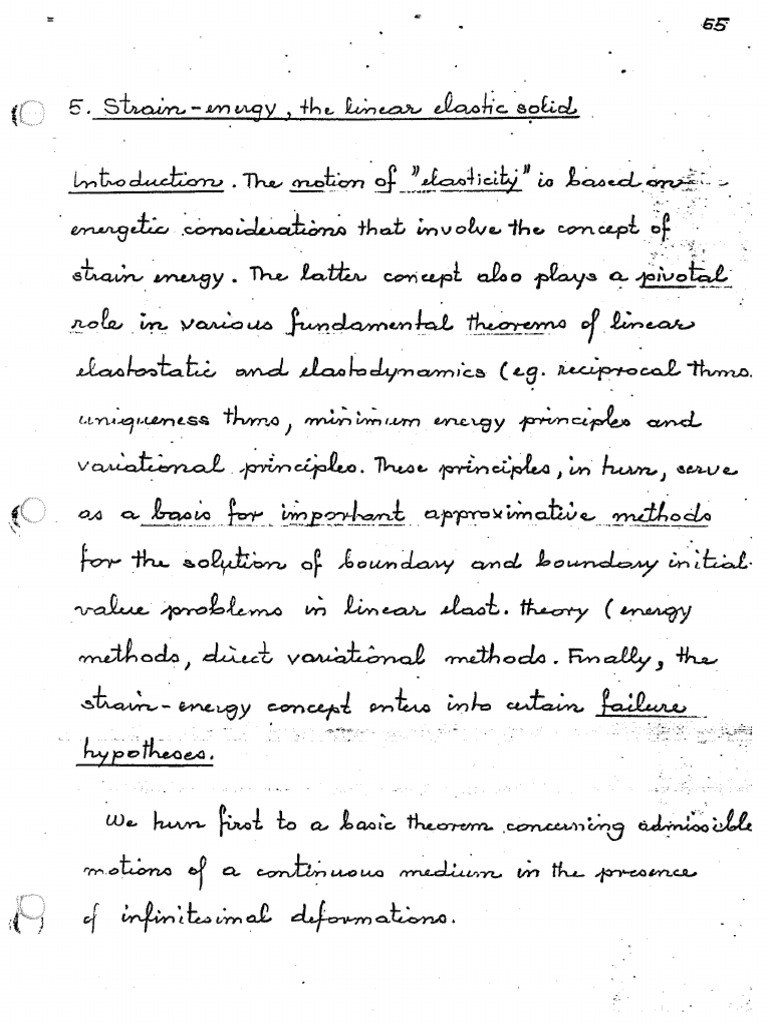 65
5. Strain-energy, the linear elastic solid
Introduction. The notion of "elasticity" is based on
energetic considerations that involve the concept of
strain energy. The latter concept also plays a pivotal
role in various fundamental theorems of linear
elastostatic and elastodynamics (eg. reciprocal thms.
uniqueness thms, minimum energy principles and
variational principles. These principles, in turn, serve
as a basis for important approximative methods
for the solution of boundary and boundary initial-
value problems in linear elast. theory (energy
methods, direct variational methods. Finally, the
strain-energy concept enters into certain failure
hypotheses.
We turn first to a basic theorem concerning admissible
motions of a continuous medium in the presence
of infinitesimal deformations.